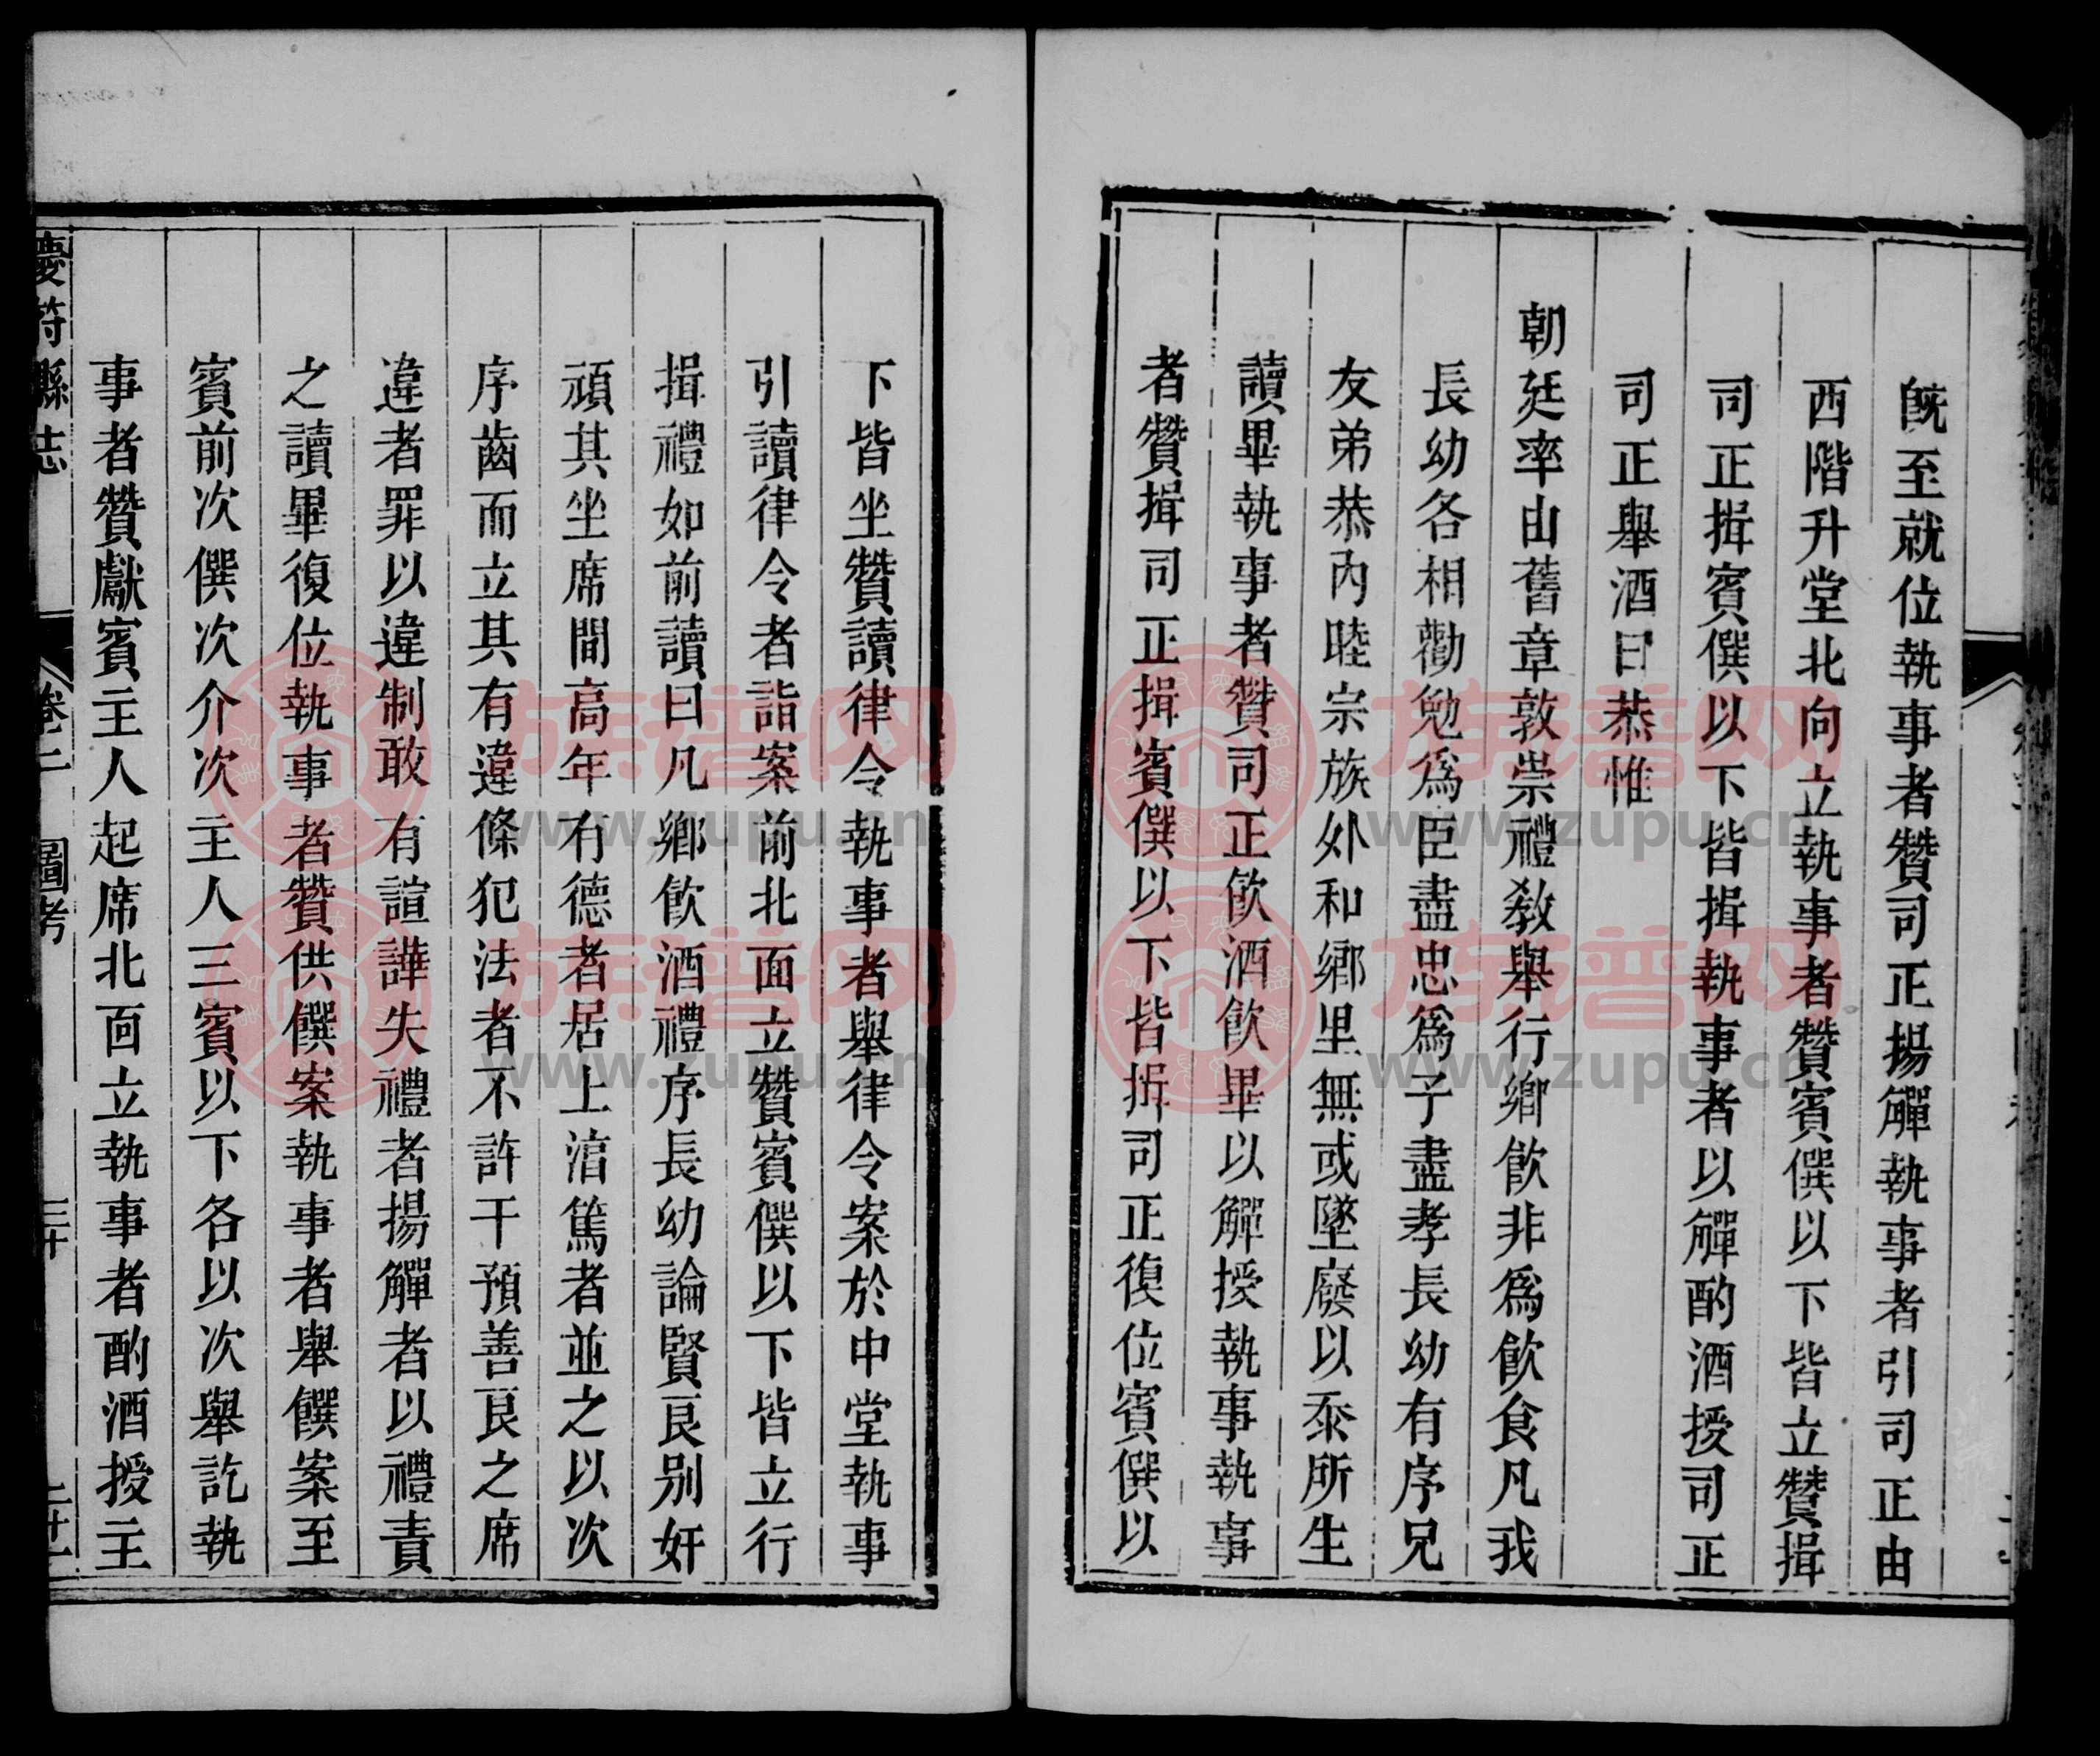 既至就位執事者贊司正揚觶執事者引司正由
西階升堂北向立執事者贊賓僎以下皆立贊揖
司正揖賓僎以下皆揖執事者以觶酌酒授司正
司正舉酒曰恭惟
朝廷率由舊章敦崇禮敎舉行鄉飮非爲飮食凡我
長幼各相勸勉爲臣盡忠爲子盡孝長幼有序兄
友弟恭內睦宗族外和鄉里無或墜廢以忝所生
讀畢執事者贊司正飮酒飮畢以觶授執事執事
者贊揖司正揖賓僎以下皆揖司正復位賓僎以
下皆坐贊讀律令執事者舉律令案於中堂執事
引讀律令者詣案前北面立贊賓僎以下皆立行
揖禮如前讀曰凡鄉飮酒禮序長幼論賢良别奸
頑其坐席間高年有德者居上湻篤者並之以次
序齒而立其有違條犯法者不許干預善良之席
違者罪以違制敢有諠譁失禮者揚觶者以禮責
之讀畢復位執事者贊供饌案執事者舉饌案至
賓前次僎次介次主人三賓以下各以次舉訖執
事者贊獻賓主人起席北面立執事者酌酒授主
慶符縣志
卷二 圖考
三十
二十一
族谱网
www.zupu.cn
族谱网
www.zupu.cn
族谱网
www.zupu.cn
族谱网
www.zupu.cn